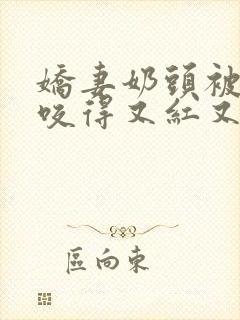 嬌妻奶頭被
咬得又紅又
區向東